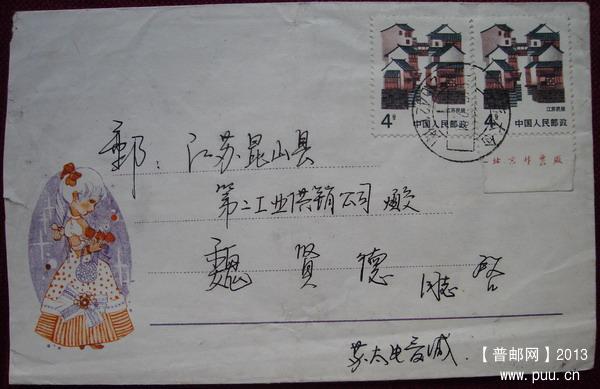 江苏民居
4分
中国人民邮政
江苏民居
4分
中国人民邮政
北京邮票厂
邮：江苏昆山县
第二工业供销公司 烦
魏 贤 德 同志 启
苏太电
【普邮网】2013
www.puu.cn